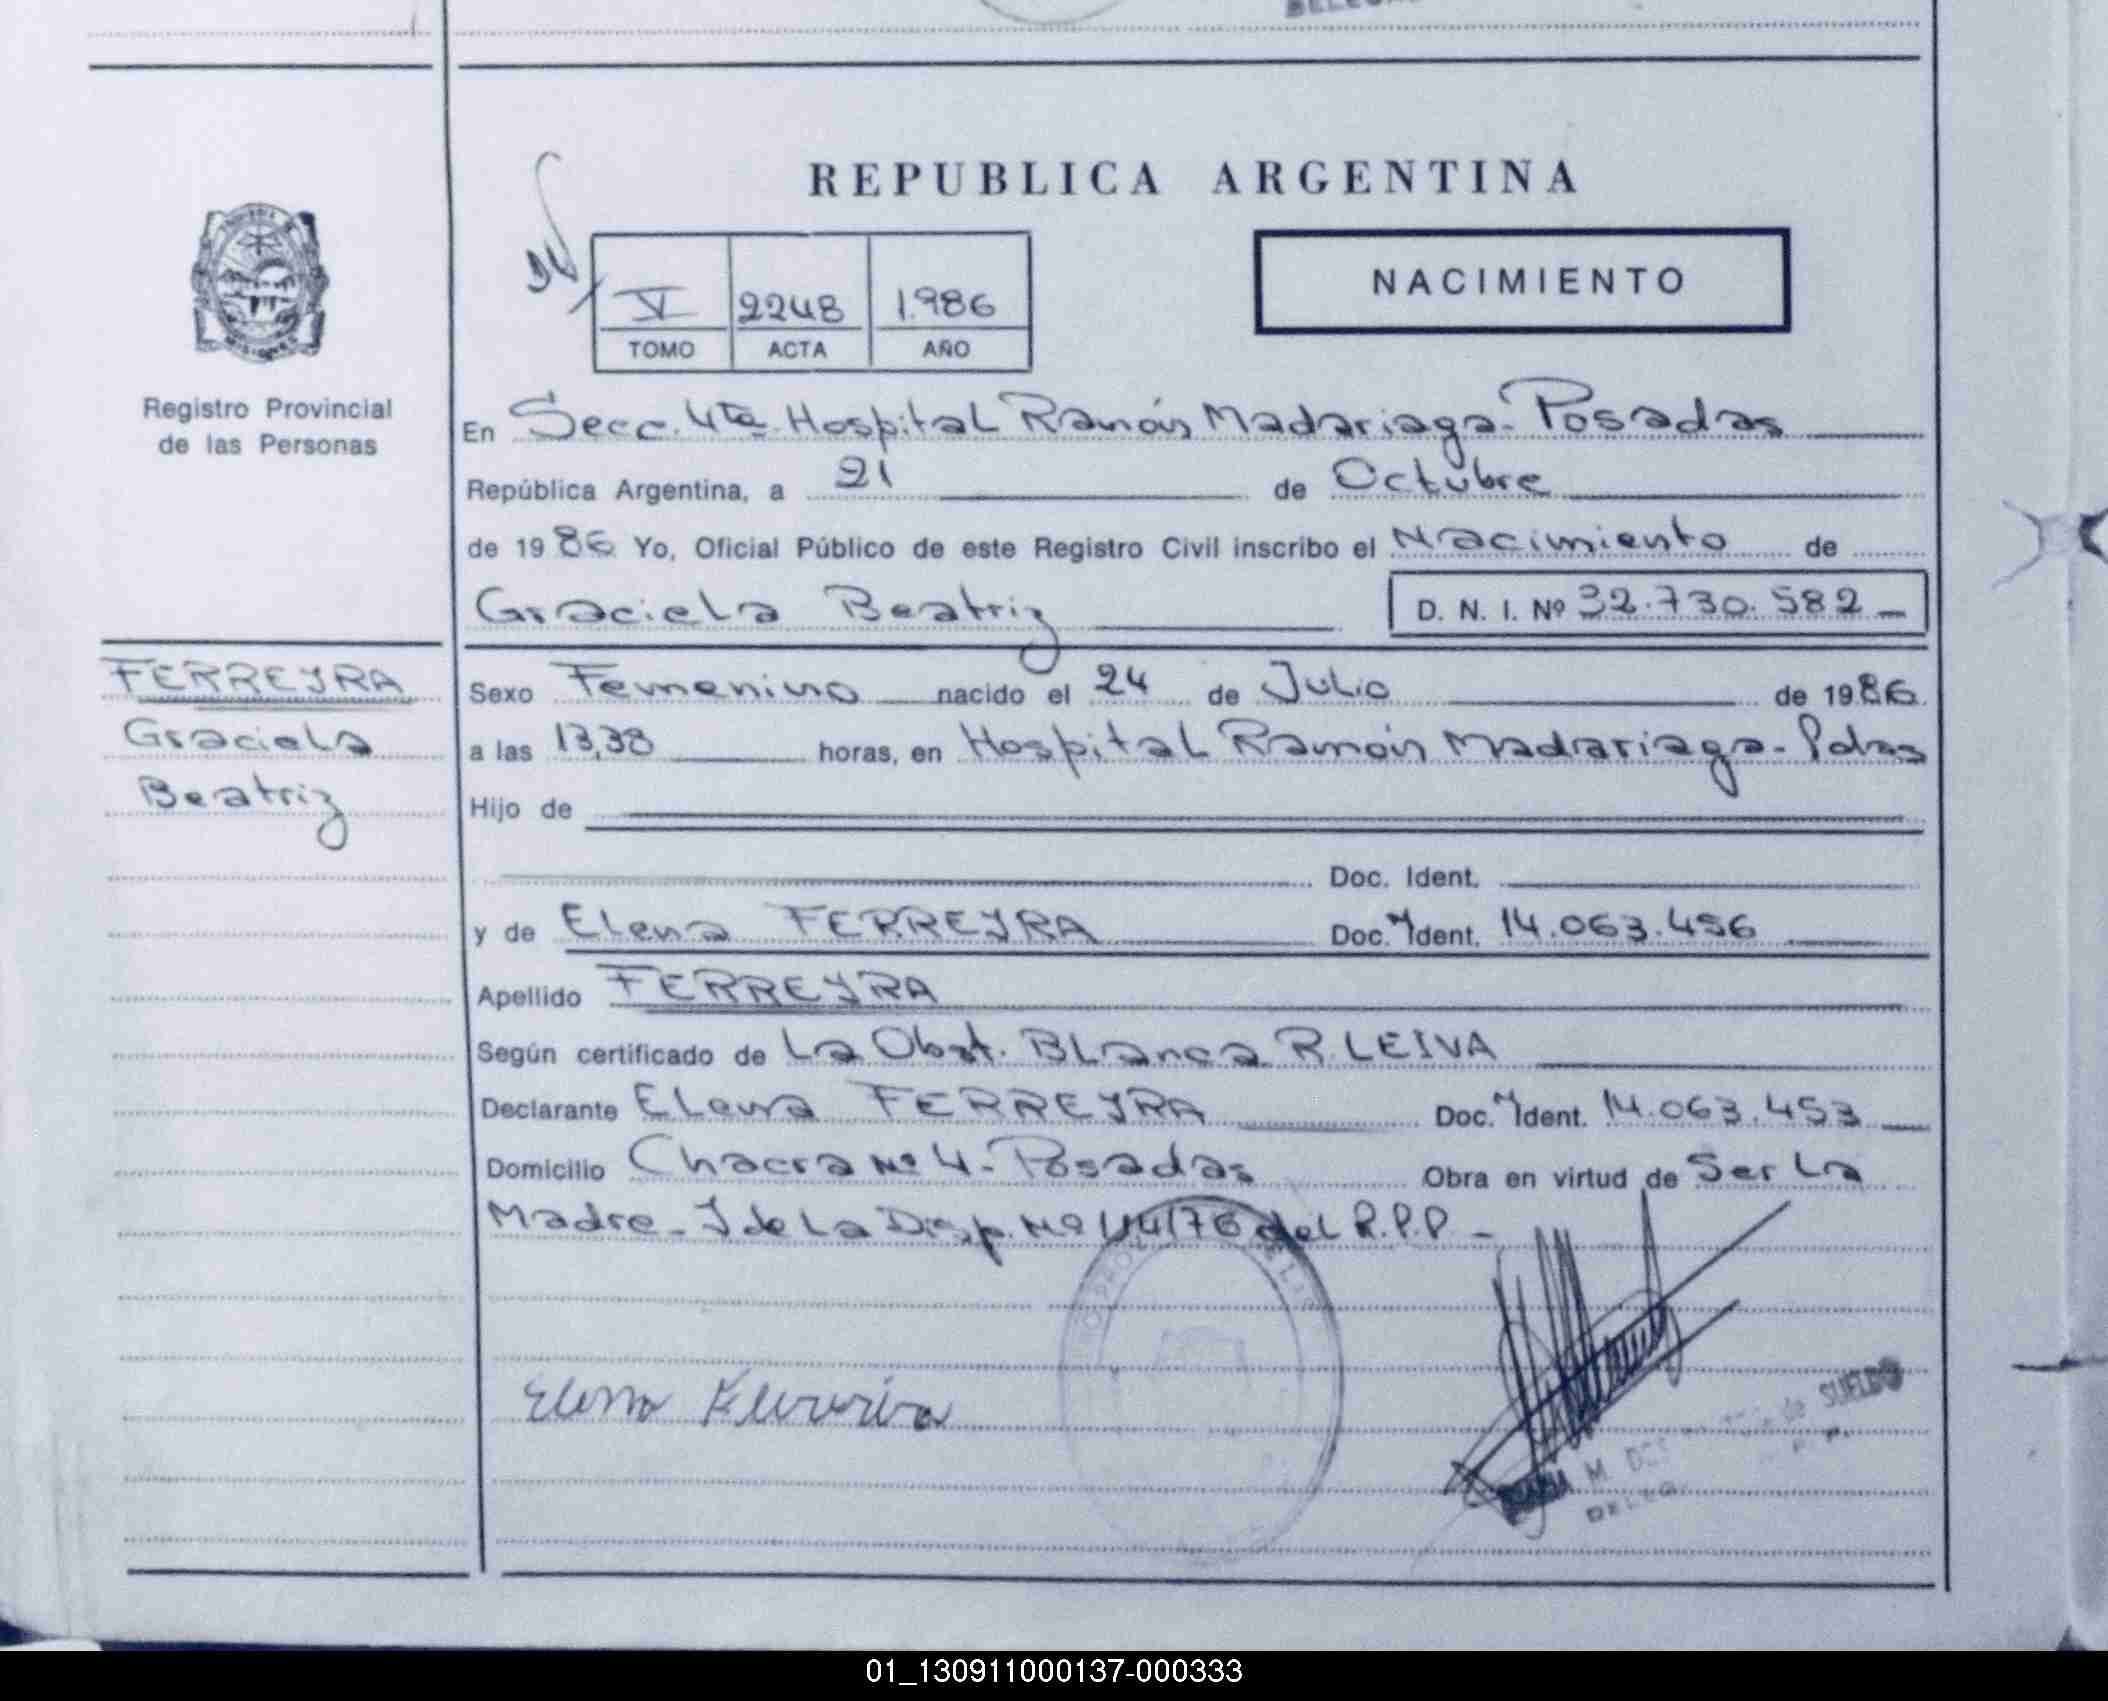 REPUBLICA ARGENTINA
NACIMIENTO
V 2248 1.986
TOMO ACTA AÑO
Registro Provincial
de las Personas
En Secc. 4ta. Hospital Ramón Madariaga - Posadas
República Argentina, a 21 de Octubre
de 1986 Yo, Oficial Público de este Registro Civil inscribo el Nacimiento de
Graciela Beatriz D. N. I. Nº 32.730.582
FERREYRA
Graciela
Beatriz
Sexo Femenino nacido el 24 de Julio de 1986
a las 13,38 horas, en Hospital Ramón Madariaga - Pdas
Hijo de
Doc. Ident.
y de Elena FERREYRA Doc. Ident. 14.063.456
Apellido FERREYRA
Según certificado de La Obst. Blanca R. LEIVA
Declarante Elena FERREYRA Doc. Ident. 14.063.453
Domicilio Chacra Nº 4 - Posadas Obra en virtud de Ser La
Madre - Y de La Disp. Nº 114/76 del R.P.P -
Elena
M. de SUELDO
01_130911000137-000333